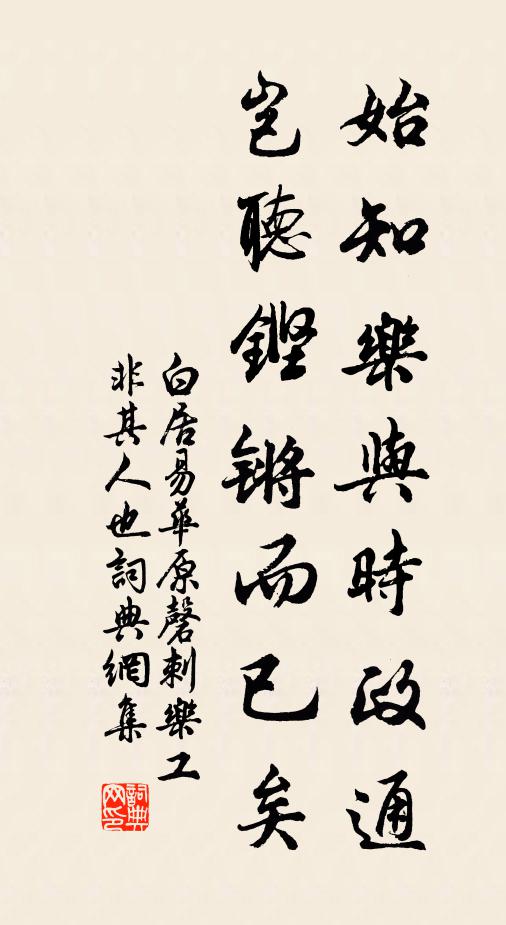 始知樂與時政通
豈聽鏗鏘而已矣
白居易華原磬刺樂工
非其人也詞典網集
詞典
网印